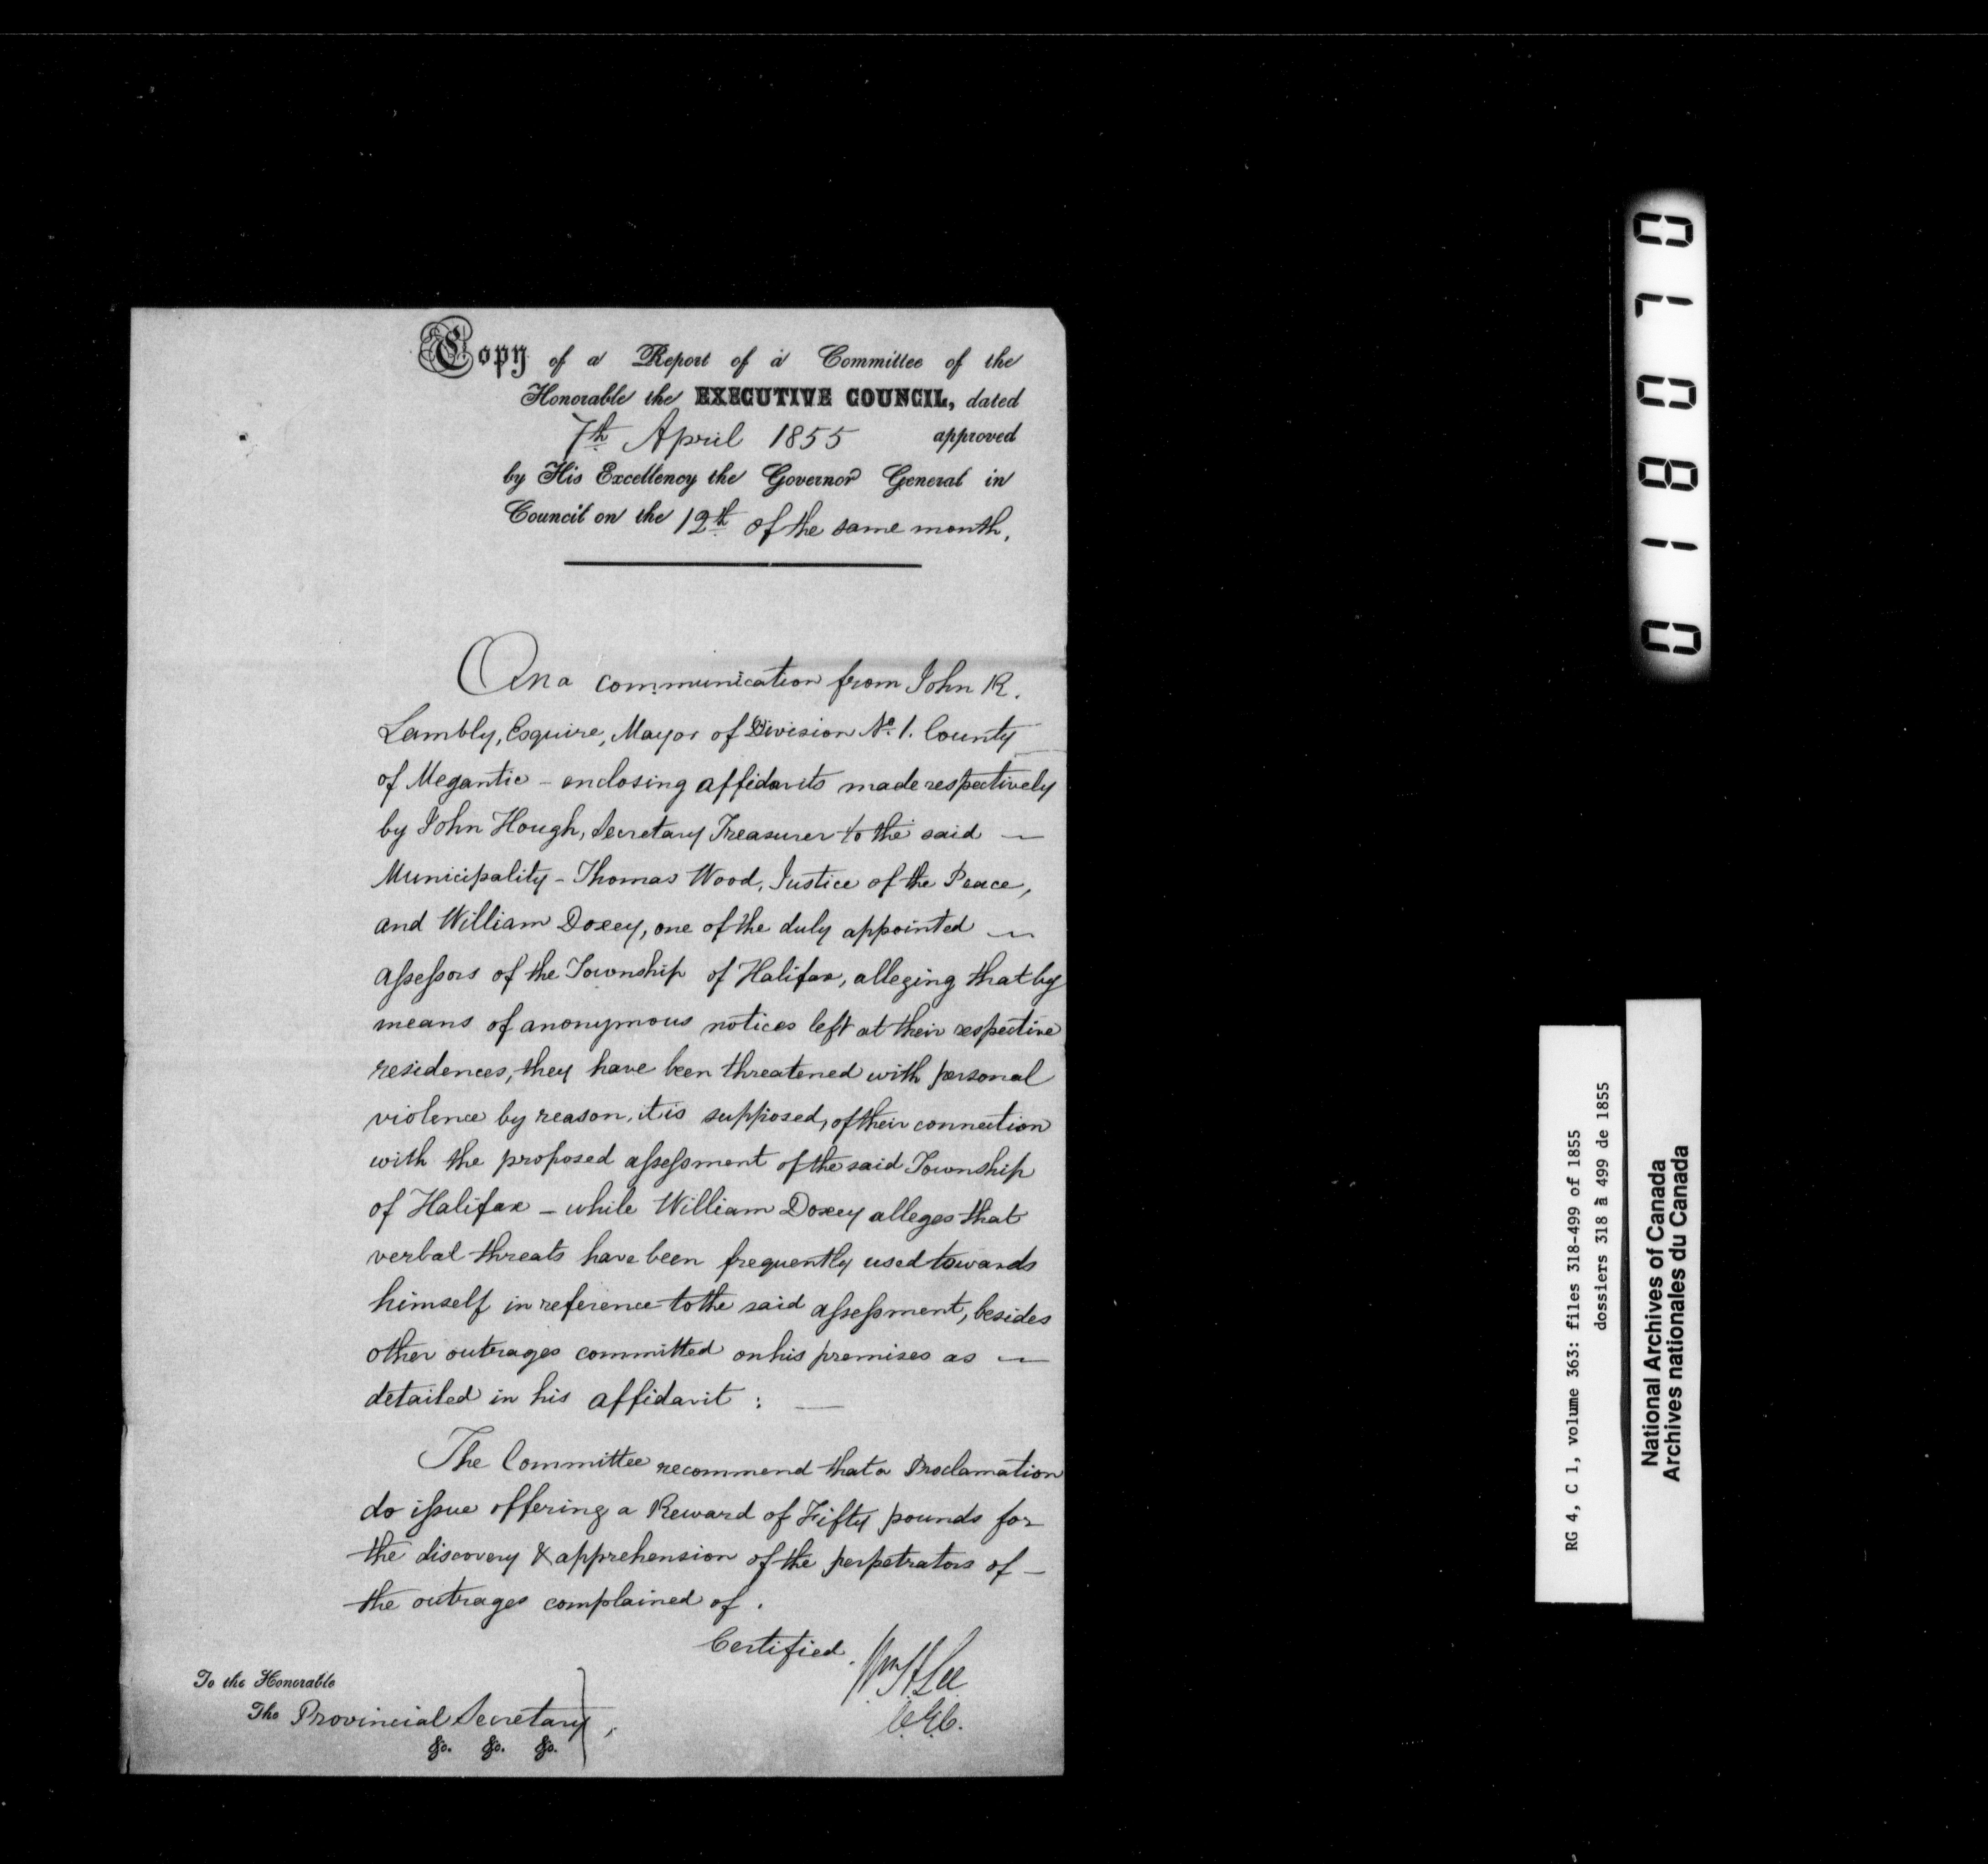 Copy of a Report of a Committee of the
Honorable the EXECUTIVE COUNCIL, dated
7th April 1855 approved
by His Excellency the Governor General in
Council on the 12th of the same month.
On a communication from John R.
Lambly, Esquire, Mayor of Division No. 1. County
of Megantic - enclosing affidavits made respectively
by John Hough, Secretary Treasurer to the said —
Municipality - Thomas Wood, Justice of the Peace,
and William Doxey, one of the duly appointed —
assessors of the Township of Halifax, alleging that by
means of anonymous notices left at their respective
residences, they have been threatened with personal
violence by reason, it is supposed, of their connection
with the proposed assessment of the said Township
of Halifax - while William Doxey alleges that
verbal threats have been frequently used towards
himself in reference to the said assessment, besides
other outrages committed on his premises as —
detailed in his affidavit : —
The Committee recommend that a Proclamation
do issue offering a Reward of Fifty pounds for
the discovery & apprehension of the perpetrators of —
the outrages complained of.
Certified.
Wm H Lee
C.E.C.
To the Honorable
The Provincial Secretary,
&c. &c. &c.
018070
RG 4, C 1, volume 363: files 318-499 of 1855
dossiers 318 à 499 de 1855
National Archives of Canada
Archives nationales du Canada